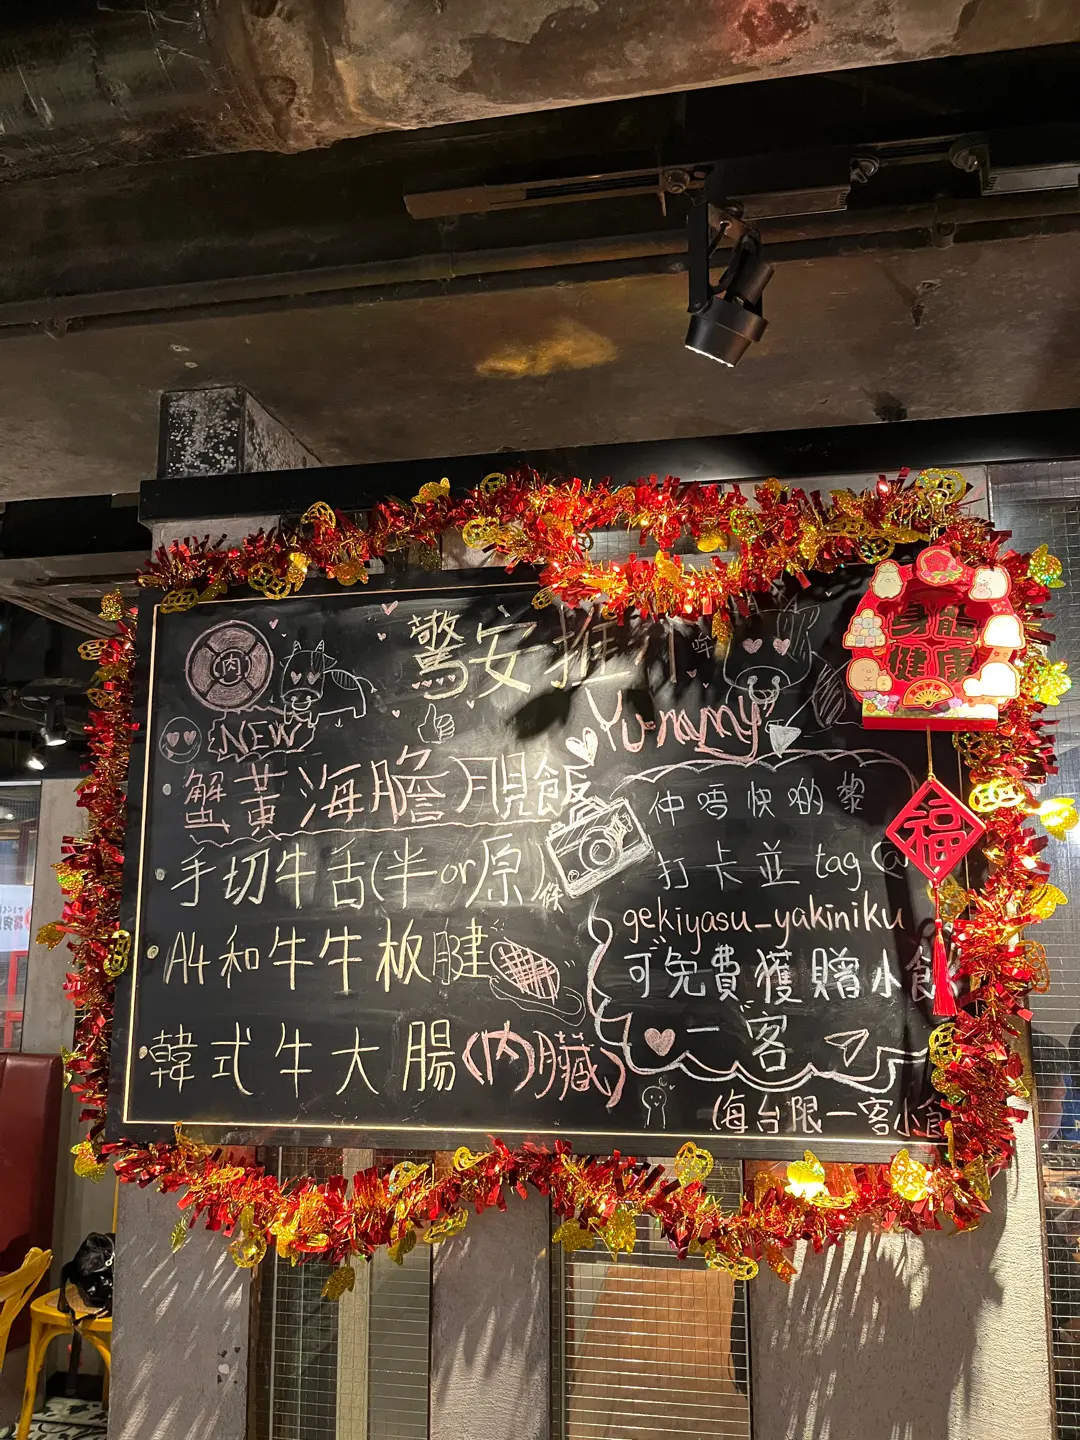 驚安推介
肉
NEW
Yummy
蟹黃海膽
飯
手切牛舌(半or原
條
A4和牛牛板腱
韓式牛大腸(內臟)
仲唔快啲黎
打卡並tag@
gekiyasu_yakiniku
可免費獲贈小食
一客
(每台限一客小食
身體
健康
福